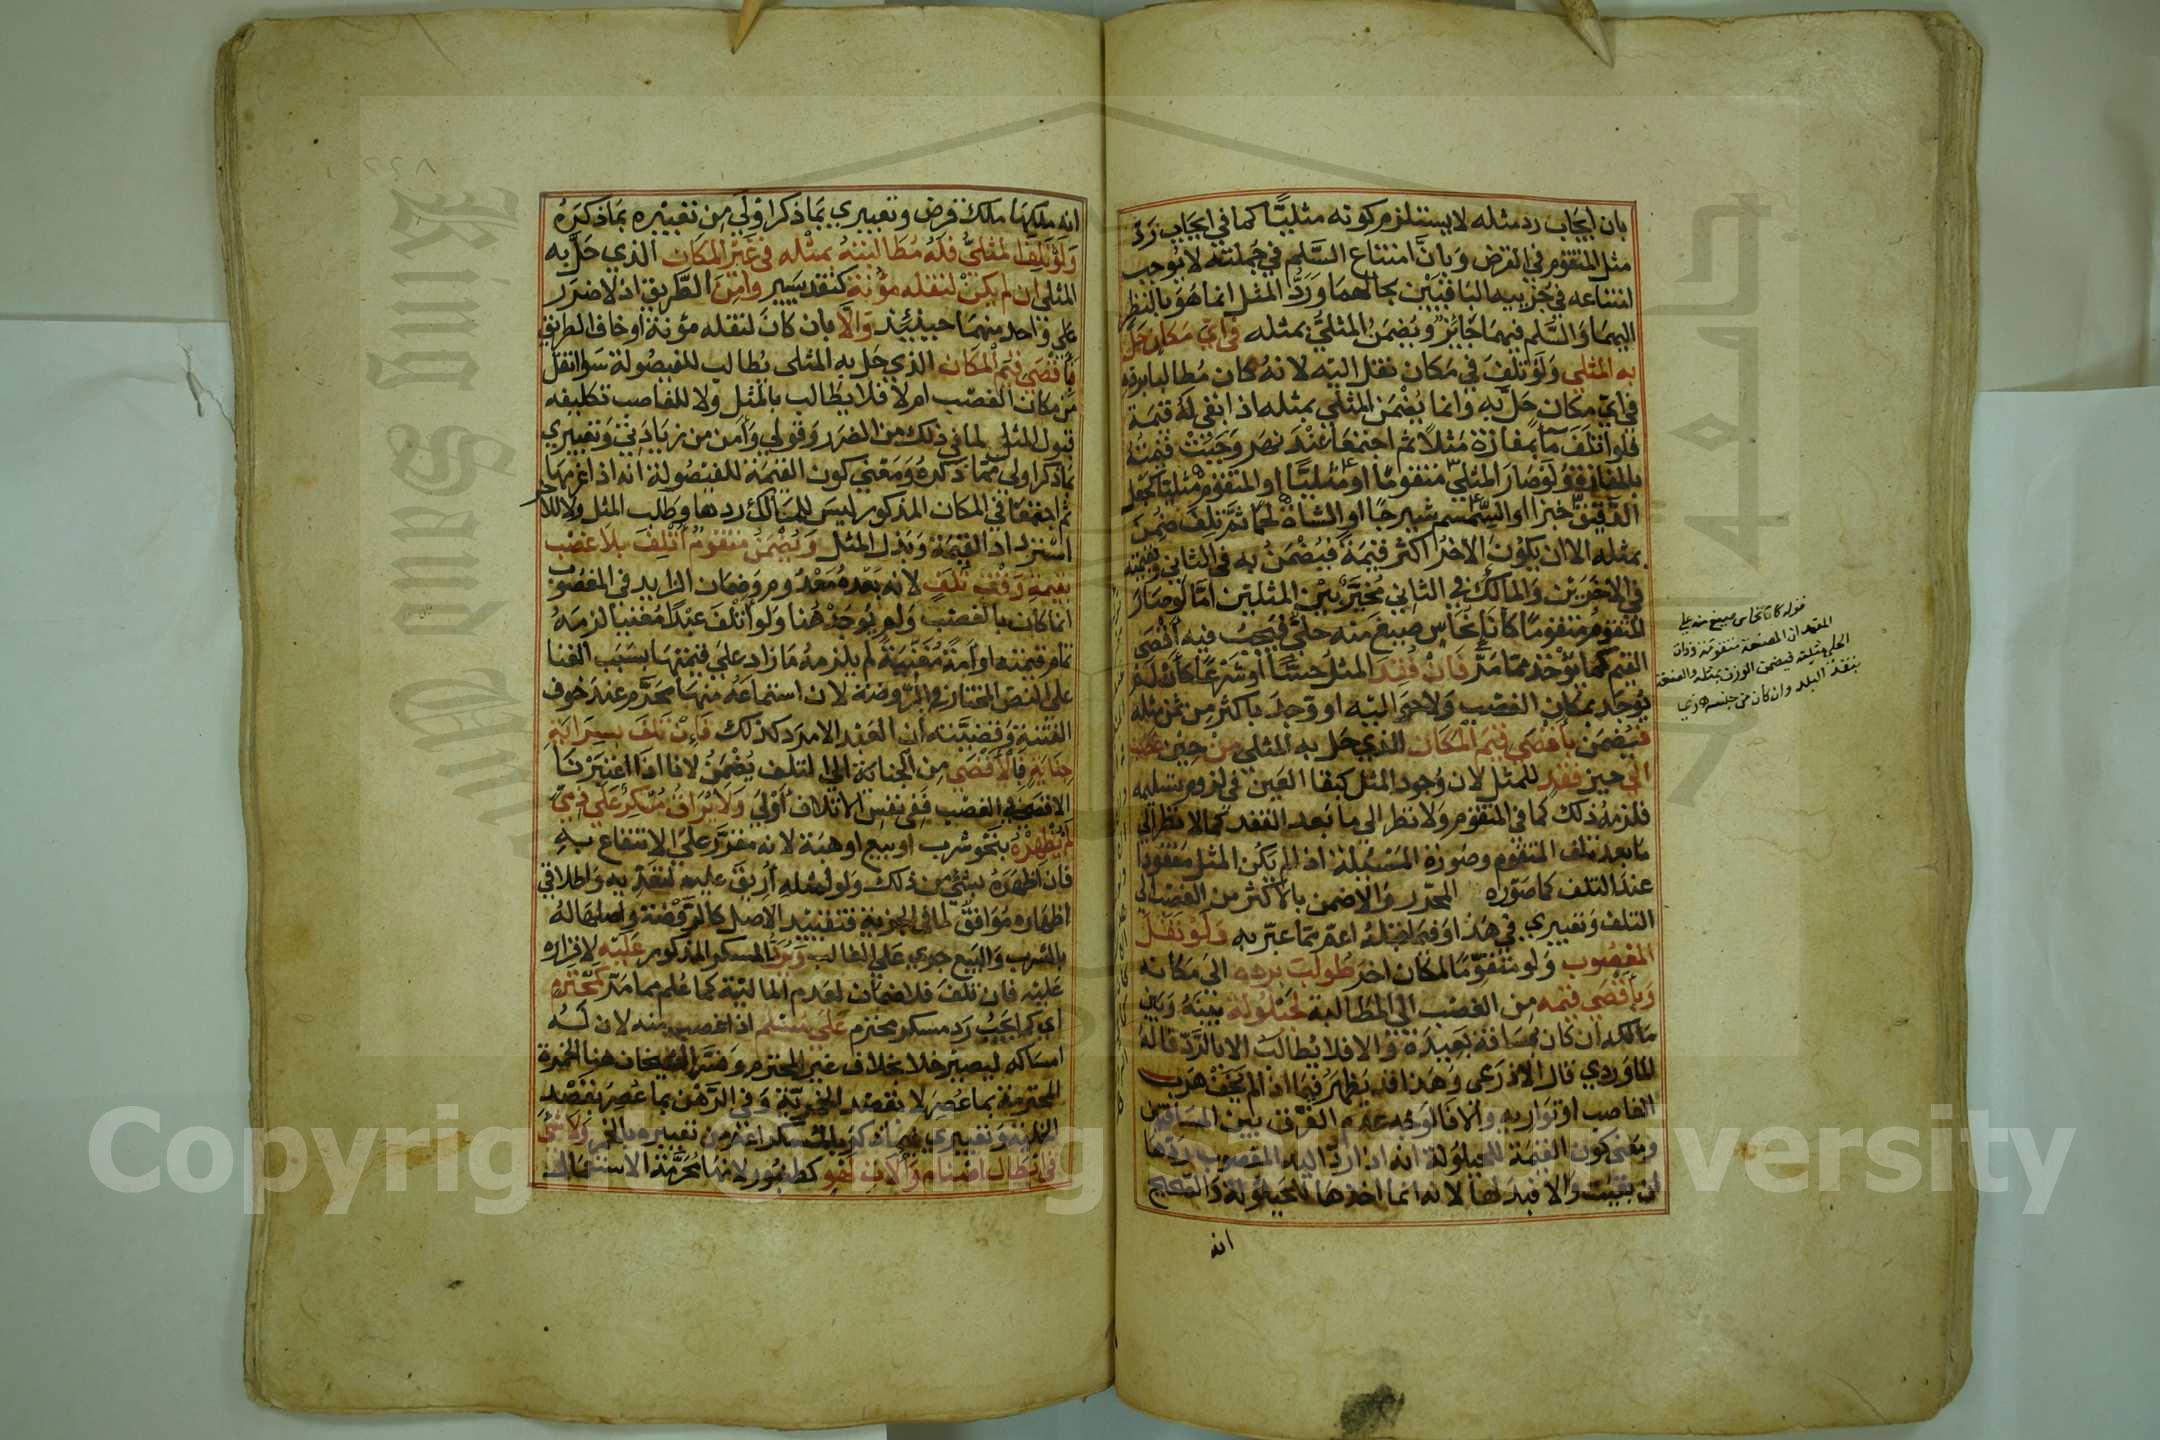 بان ايجاب رد مثله لا يستلزم كونه مثليا كما في ايجاب رد
مثل المتقوم في القرض وبان امتناع السلم في جملته لا يوجب
امتناعه في جزييه الباقيين بحالهما ورد المثل انما هو بالنظر
اليهما والسلم فيهما جايز ويضمن المثلي بمثله في اي مكان حل
به المثلي ولو تلف في مكان نقل اليه لانه كان مطالبا برده
في اي مكان حل به وانما يضمن المثلي بمثله اذا بقي له قيمة
فلو اتلف ماء بمفازة مثلا ثم اجتمعا عند نهر وجبت قيمته
بالمفازة ولو صار المثلي متقوما او مثليا او المتقوم مثليا كجعل
الدقيق خبزا او السمسم شيرجا او الشاة لحما ثم تلف ضمن
بمثله الا ان يكون الاخر اكثر قيمة فيضمن به في الثاني وبقيمته
في الاخرين والمالك في الثاني مخير بين المثليين اما لو صار
المتقوم متقوما كاناء نحاس صيغ منه حلي فيجب فيه اقصى
القيم كما يؤخذ مما مر فان فقد المثل حسا او شرعا كان لم
يوجد بمكان الغصب ولا حواليه او وجد باكثر من ثمن مثله
فيضمن باقصى قيم المكان الذي حل به المثلي من حين غصب
الى حين فقد للمثل لان وجود المثل كبقا العين في لزوم تسليمه
فلزمه ذلك كما في المتقوم ولا نظر الى ما بعد الفقد كما لا نظر الى
ما بعد تلف المتقوم وصورة المسئلة اذا لم يكن المثل مفقودا
عند التلف كما صوره المحرر والا ضمن بالاكثر من الغصب الى
التلف وتعبيري في هذا وفيما قبله اعم مما عبر به ولو نقل
المغصوب ولو متقوما لمكان اخر طولب برده الى مكانه
وباقصى قيمه من الغصب الى المطالبة لحيلولة بينه وبين
مالكه ان كان بمسافة بعيدة والا فلا يطالب الا بالرد قاله
الماوردي قال الاذرعي وهذا قد يظهر فيما اذا لم يخف هرب
الغاصب او تواريه والا فالوجه عدم الفرق بين المسافتين
ومعنى كون القيمة للحيلولة انه اذا رد اليه المغصوب ردها
ان بقيت والا فبدلها لانه انما اخذها للحيلولة والصحيح
انه
قوله كاناء نحاس صيغ منه حلي
المعتمد ان الصنعة متقومة وذات
الحلي مثلية فيضمن الوزن بمثله والصنعة
بنقد البلد وان كان من جنسه
انه ملكها ملك قرض وتعبيري بما ذكر اولى من تعبيره بما ذكره
ولو تلف المثلي فله مطالبته بمثله في غير المكان الذي حل به
المثلي ان لم يكن لنقله مؤنة كنقد يسير وامن الطريق اذ لا ضرر
على واحد منهما حينئذ والا بان كان لنقله مؤنة او خاف الطريق
فباقصى قيم المكان الذي حل به المثلي يطالب للفيصولة سوا نقل
من مكان الغصب ام لا فلا يطالب بالمثل ولا للغاصب تكليفه
قبول المثل لما في ذلك من الضرر وقولي وامن من زيادتي وتعبيري
بما ذكر اولى مما ذكره ومعنى كون القيمة للفيصولة انه اذا غرمها
ثم اجتمعا في المكان المذكور ليس للمالك ردها وطلب المثل ولا للاخر
استرداد القيمة وبذل المثل ويضمن متقوم اتلف بلا غصب
بقيمة وقت تلف لانه بعده معدوم وضمان الزايد في المغصوب
انما كان بالغصب ولم يوجد هنا ولو اتلف عبدا مغنيا لزمه
تمام قيمته او امة مغنية لم يلزمه ما زاد على قيمتها بسبب الغنا
على النص المختار في الروضة لان استماعه منها محرم عند خوف
الفتنة وقضيته ان العبد الامرد كذلك فان تلف بسراية
جناية فالاقصى من الجناية الى التلف يضمن لانا اذا اعتبرنا
الاقصى في الغصب ففي نفس الاتلاف اولى ولا يراق مسكر على ذمي
لم يظهره بنحو شرب او بيع او هبة لانه مقر على الانتفاع به
فان اظهره بشيء من ذلك ولو لمثله اريق عليه لتعديه واطلاقي
اظهاره موافق لما في الجزية فتقييد الاصل كالروضة واصلها له
بالشرب والبيع جري على الغالب ويرد المسكر المذكور عليه لاقراره
عليه فان تلف فلا ضمان لعدم المالية كما علم مما مر كمحترم
اي كما يجب رد مسكر محترم على مسلم اذا غصب منه لان له
امساكه ليصير خلا بخلاف غير المحترم وفسر الشيخان هنا الخمرة
المحترمة بما عصر لا بقصد الخمرية وفي الرهن بما عصر بقصد
الخلية وتعبيري فيما ذكر بالمسكر اعم من تعبيره بالخمر ولا شيء
في ابطال اصنام والات لهو كطنبور لانها محرمة الاستعمال
٢٢٨
Copyright © King Saud University
King Saud University